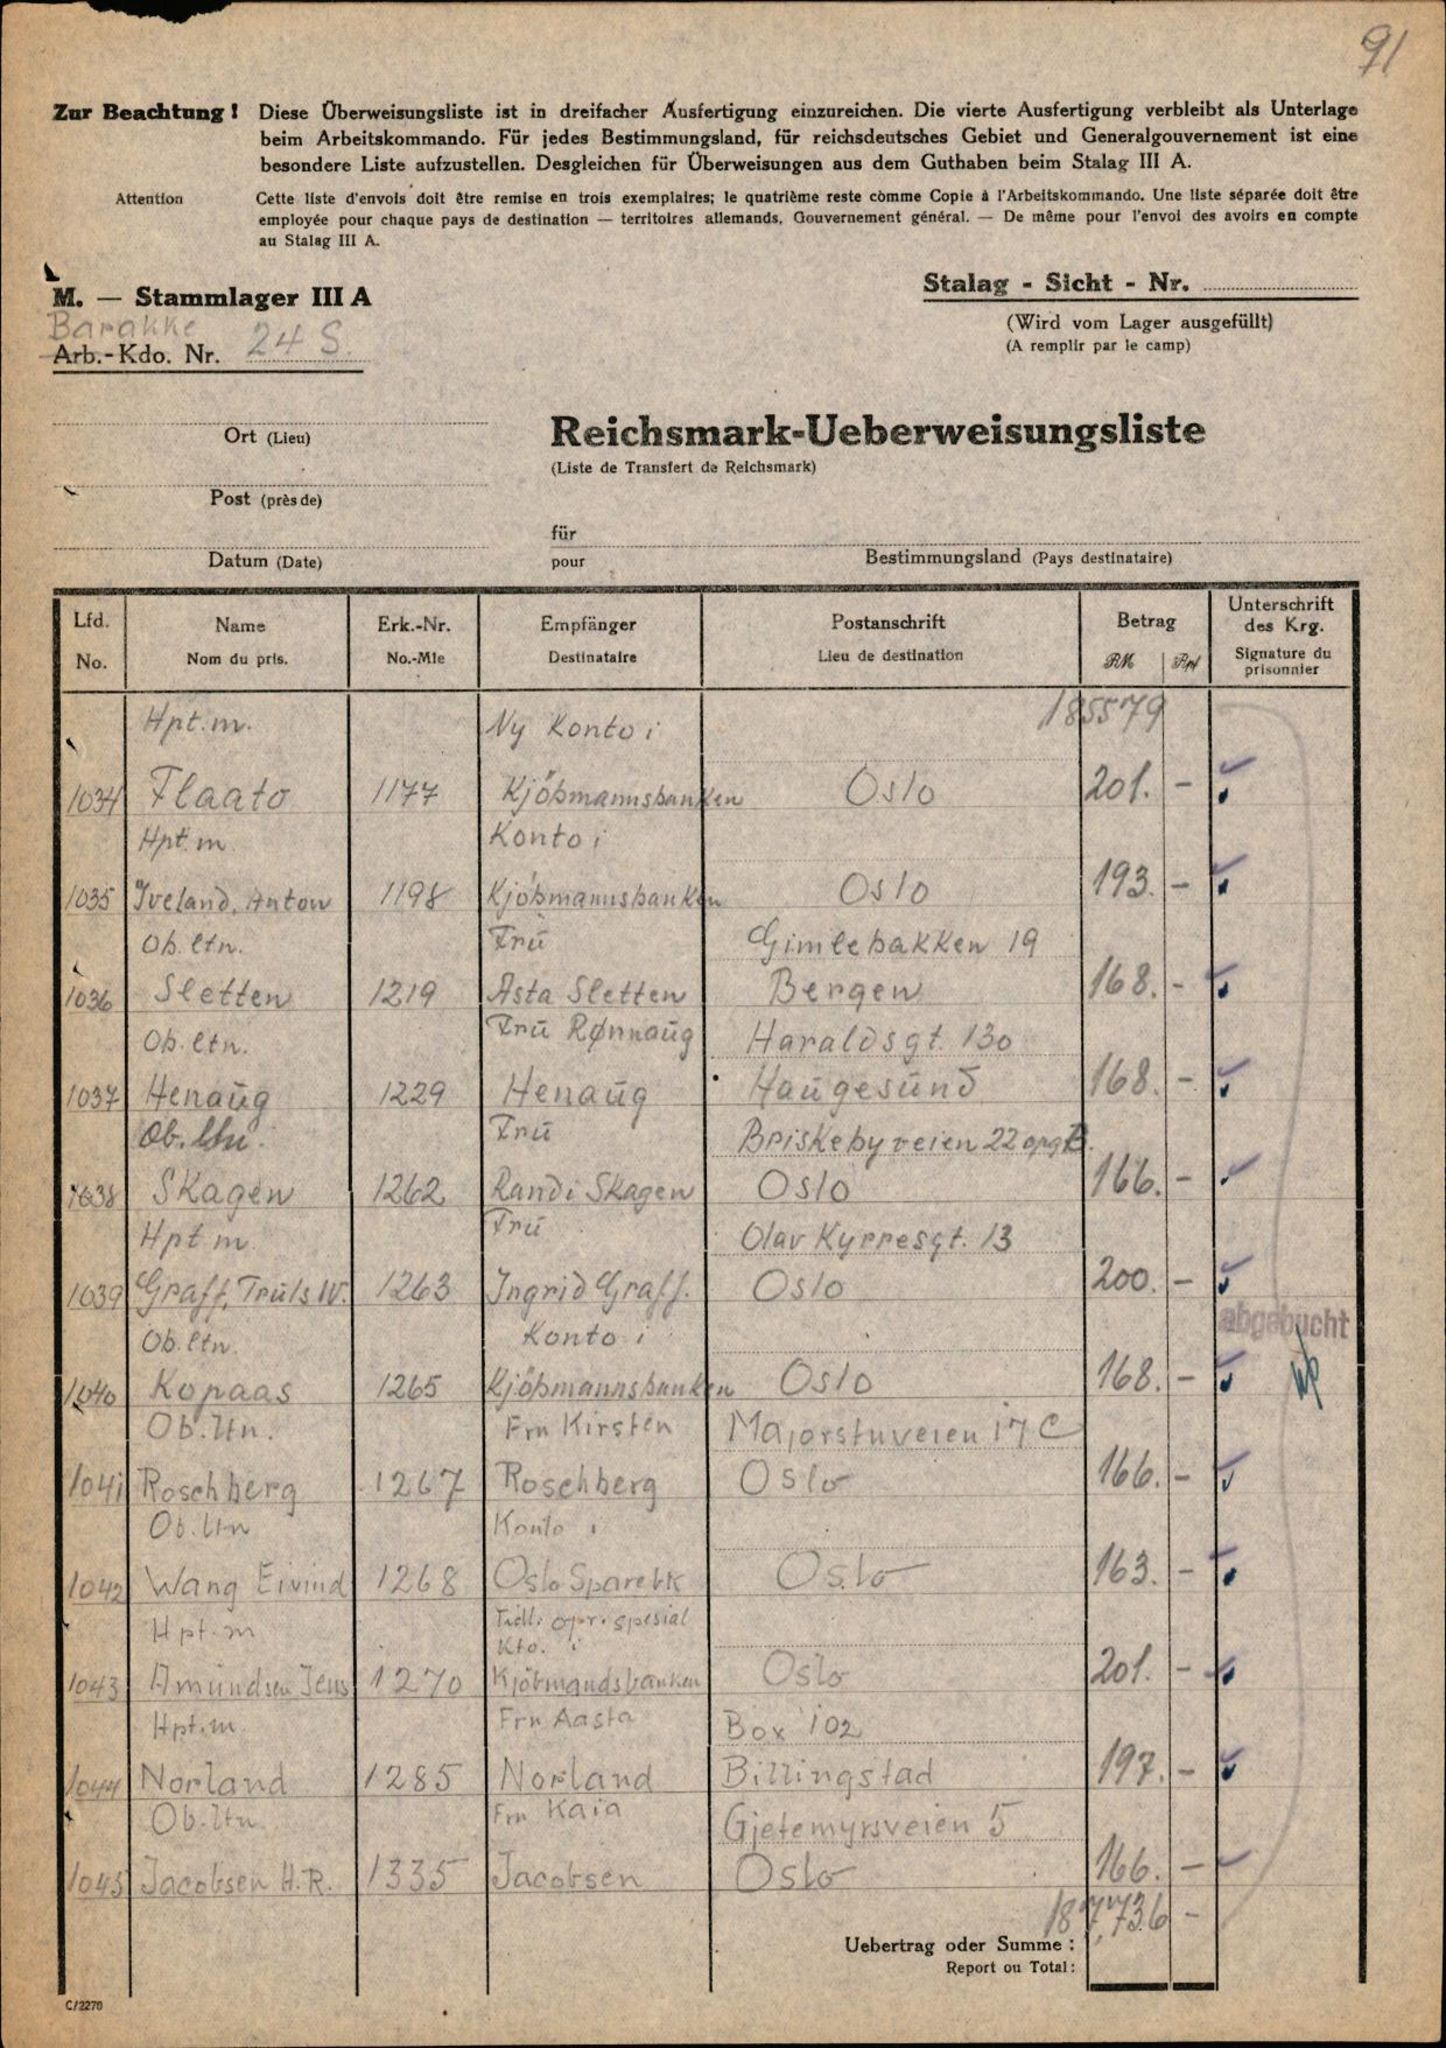 91
Zur Beachtung! Diese Überweisungsliste ist in dreifacher Ausfertigung einzureichen. Die vierte Ausfertigung verbleibt als Unterlage
beim Arbeitskommando. Für jedes Bestimmungsland, für reichsdeutsches Gebiet und Generalgouvernement ist eine
besondere Liste aufzustellen. Desgleichen für Überweisungen aus dem Guthaben beim Stalag III A.
Attention Cette liste d'envois doit être remise en trois exemplaires; le quatrième reste comme Copie à l'Arbeitskommando. Une liste séparée doit être
employée pour chaque pays de destination — territoires allemands, Gouvernement général. — De même pour l'envoi des avoirs en compte
au Stalag III A.
M. — Stammlager III A
Stalag - Sicht - Nr.
(Wird vom Lager ausgefüllt)
(A remplir par le camp)
Barakke
Arb.-Kdo. Nr. 24 S.
Ort (Lieu)
Reichsmark-Ueberweisungsliste
(Liste de Transfert de Reichsmark)
Post (près de)
für
Datum (Date)
pour
Bestimmungsland (Pays destinataire)
Lfd. Name Erk.-Nr. Empfänger Postanschrift Betrag Unterschrift des Krg.
No. Nom du pris. No.-Mle Destinataire Lieu de destination RM Rpf Signature du prisonnier
Hpt.m. Ny Konto i 185579
1034 Flaato 1177 Kjöbmannsbanken Oslo 201. –
Hpt.m Konto i
1035 Iveland, Anton 1198 Kjöbmannsbanken Oslo 193. –
Ob.ltn. Frü Gimlebakken 19
1036 Sletten 1219 Asta Sletten Bergen 168. –
Ob.ltn. Frü Rønnaüg Haraldsgt. 130
1037 Henaüg 1229 Henaüg Haügesünd 168. –
Ob.ltn. Frü Briskebyveien 22 opg B.
1038 Skagen 1262 Randi Skagen Oslo 166. –
Hpt m. Frü Olav Kyrresgt. 13
1039 Graff, Truls W. 1263 Ingrid Graff. Oslo 200. –
abgebucht
Ob.ltn. Konto i
1040 Kopaas 1265 Kjöbmannsbanken Oslo 168. –
Ob.ltn. Fru Kirsten Majorstuveien 17 C
1041 Roschberg 1267 Roschberg Oslo 166. –
Ob.ltn Konto i
1042 Wang Eivind 1268 Oslo Sparebk Oslo 163. –
Hpt.m Tidl. opr. spesial
Kto. i
1043 Amündsen Jens 1270 Kjöbmandsbanken Oslo 201. –
Hpt.m. Fru Aasta Box 102
1044 Norland 1285 Norland Billingstad 197. –
Ob.ltn. Fru Kaia Gjetemyrsveien 5
1045 Jacobsen H.R. 1335 Jacobsen Oslo 166. –
187,736 –
Uebertrag oder Summe:
Report ou Total:
C/2270